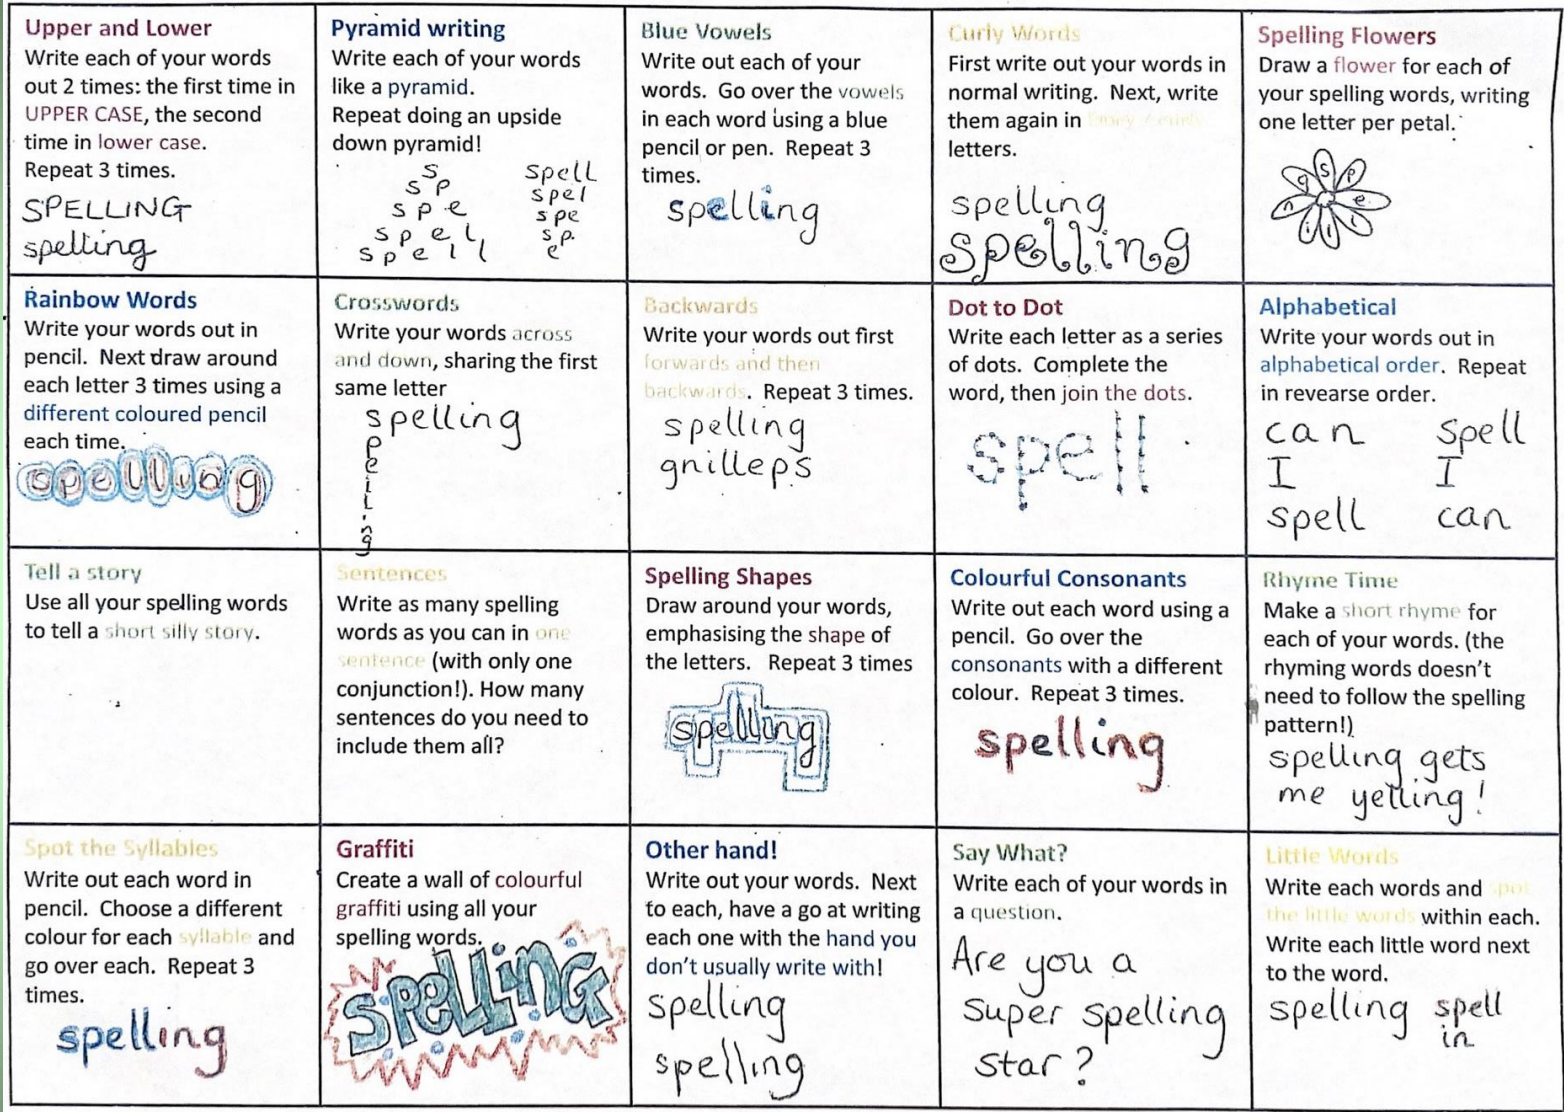 Upper and Lower
Write each of your words
out 2 times: the first time in
UPPER CASE, the second
time in lower case.
Repeat 3 times.
SPELLING
spelling
Pyramid writing
Write each of your words
like a pyramid.
Repeat doing an upside
down pyramid!
s
s p
s p e
s p e l
s p e l l
spell
spel
spe
sp.
e
Blue Vowels
Write out each of your
words. Go over the vowels
in each word using a blue
pencil or pen. Repeat 3
times.
spelling
Curly Words
First write out your words in
normal writing. Next, write
them again in / curly
letters.
spelling
spelling
Spelling Flowers
Draw a flower for each of
your spelling words, writing
one letter per petal.
s p e l l i n g
Rainbow Words
Write your words out in
pencil. Next draw around
each letter 3 times using a
different coloured pencil
each time.
spelling
Crosswords
Write your words across
and down, sharing the first
same letter
spelling
p
e
l
l
i
n
g
Backwards
Write your words out first
forwards and then
backwards. Repeat 3 times.
spelling
gnilleps
Dot to Dot
Write each letter as a series
of dots. Complete the
word, then join the dots.
spell
Alphabetical
Write your words out in
alphabetical order. Repeat
in revearse order.
can spell
I I
spell can
Tell a story
Use all your spelling words
to tell a short silly story.
Sentences
Write as many spelling
words as you can in one
sentence (with only one
conjunction!). How many
sentences do you need to
include them all?
Spelling Shapes
Draw around your words,
emphasising the shape of
the letters. Repeat 3 times
spelling
Colourful Consonants
Write out each word using a
pencil. Go over the
consonants with a different
colour. Repeat 3 times.
spelling
Rhyme Time
Make a short rhyme for
each of your words. (the
rhyming words doesn't
need to follow the spelling
pattern!)
spelling gets
me yelling!
Spot the Syllables
Write out each word in
pencil. Choose a different
colour for each syllable and
go over each. Repeat 3
times.
spelling
Graffiti
Create a wall of colourful
graffiti using all your
spelling words.
SPELLiNG
Other hand!
Write out your words. Next
to each, have a go at writing
each one with the hand you
don't usually write with!
spelling
spelling
Say What?
Write each of your words in
a question.
Are you a
super spelling
star?
Little Words
Write each words and spot
the little words within each.
Write each little word next
to the word.
spelling spell
in